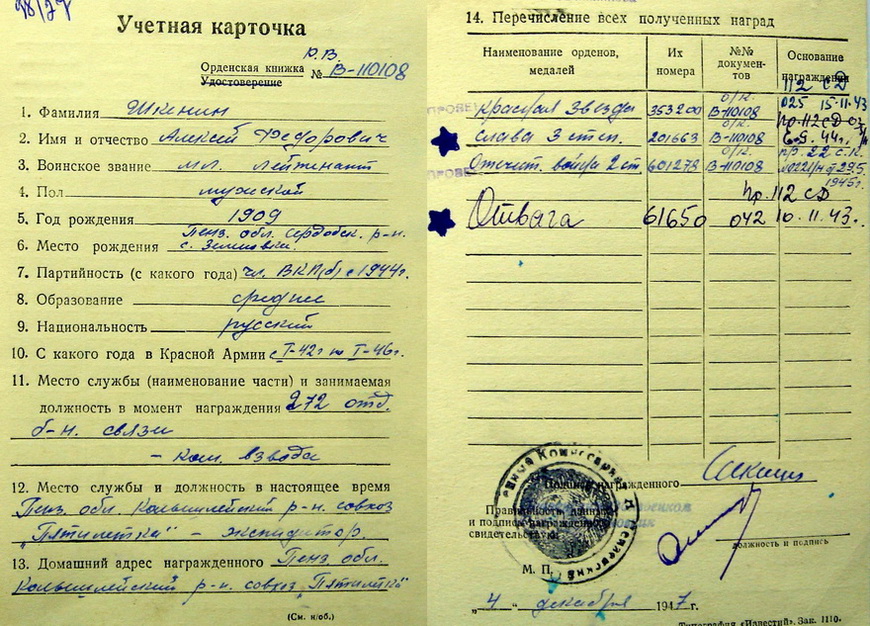 98/77
Учетная карточка
Орденская книжка
Удостоверение
№ В-110108
1. Фамилия Шкенин
2. Имя и отчество Алексей Федорович
3. Воинское звание мл. лейтенант
4. Пол мужской
5. Год рождения 1909
Пенз. обл. Сердобск. р-н.
6. Место рождения
7. Партийность (с какого года) чл. ВКП(б) с 1944г.
8. Образование среднее
9. Национальность русский
10. С какого года в Красной Армии с I-42г по I-46г.
11. Место службы (наименование части) и занимаемая
должность в момент награждения 272 отд.
б-н. связи
- ком. взвода
12. Место службы и должность в настоящее время
Пенз. обл. Колышлейский р-н. совхоз
„Пятилетка“ - экспедитор.
13. Домашний адрес награжденного Пенз. обл.
Колышлейский р-н. совхоз „Пятилетка“
(См. н/об.)
14. Перечисление всех полученных наград
Наименование орденов, медалей
Их номера
№№ документов
Основание награждения
112 сд
Красная Звезда 353200 о/к. В-110108 025 15-11-43
Слава 3 степ. 201663 о/к. В-110108 пр. 112 сд
Отечест. война 2 ст. 601278 о/к. В-110108 пр. 22 с.к.
1945г.
пр. 112 сд
Отвага 61650 042 10.11.43.
Подпись награжденного
Правильность данных
и подписи награжденного
свидетельствую
должность и подпись
М. П.
„4“ декабря 1947 г.
Типография «Известий». Зак. 1110.